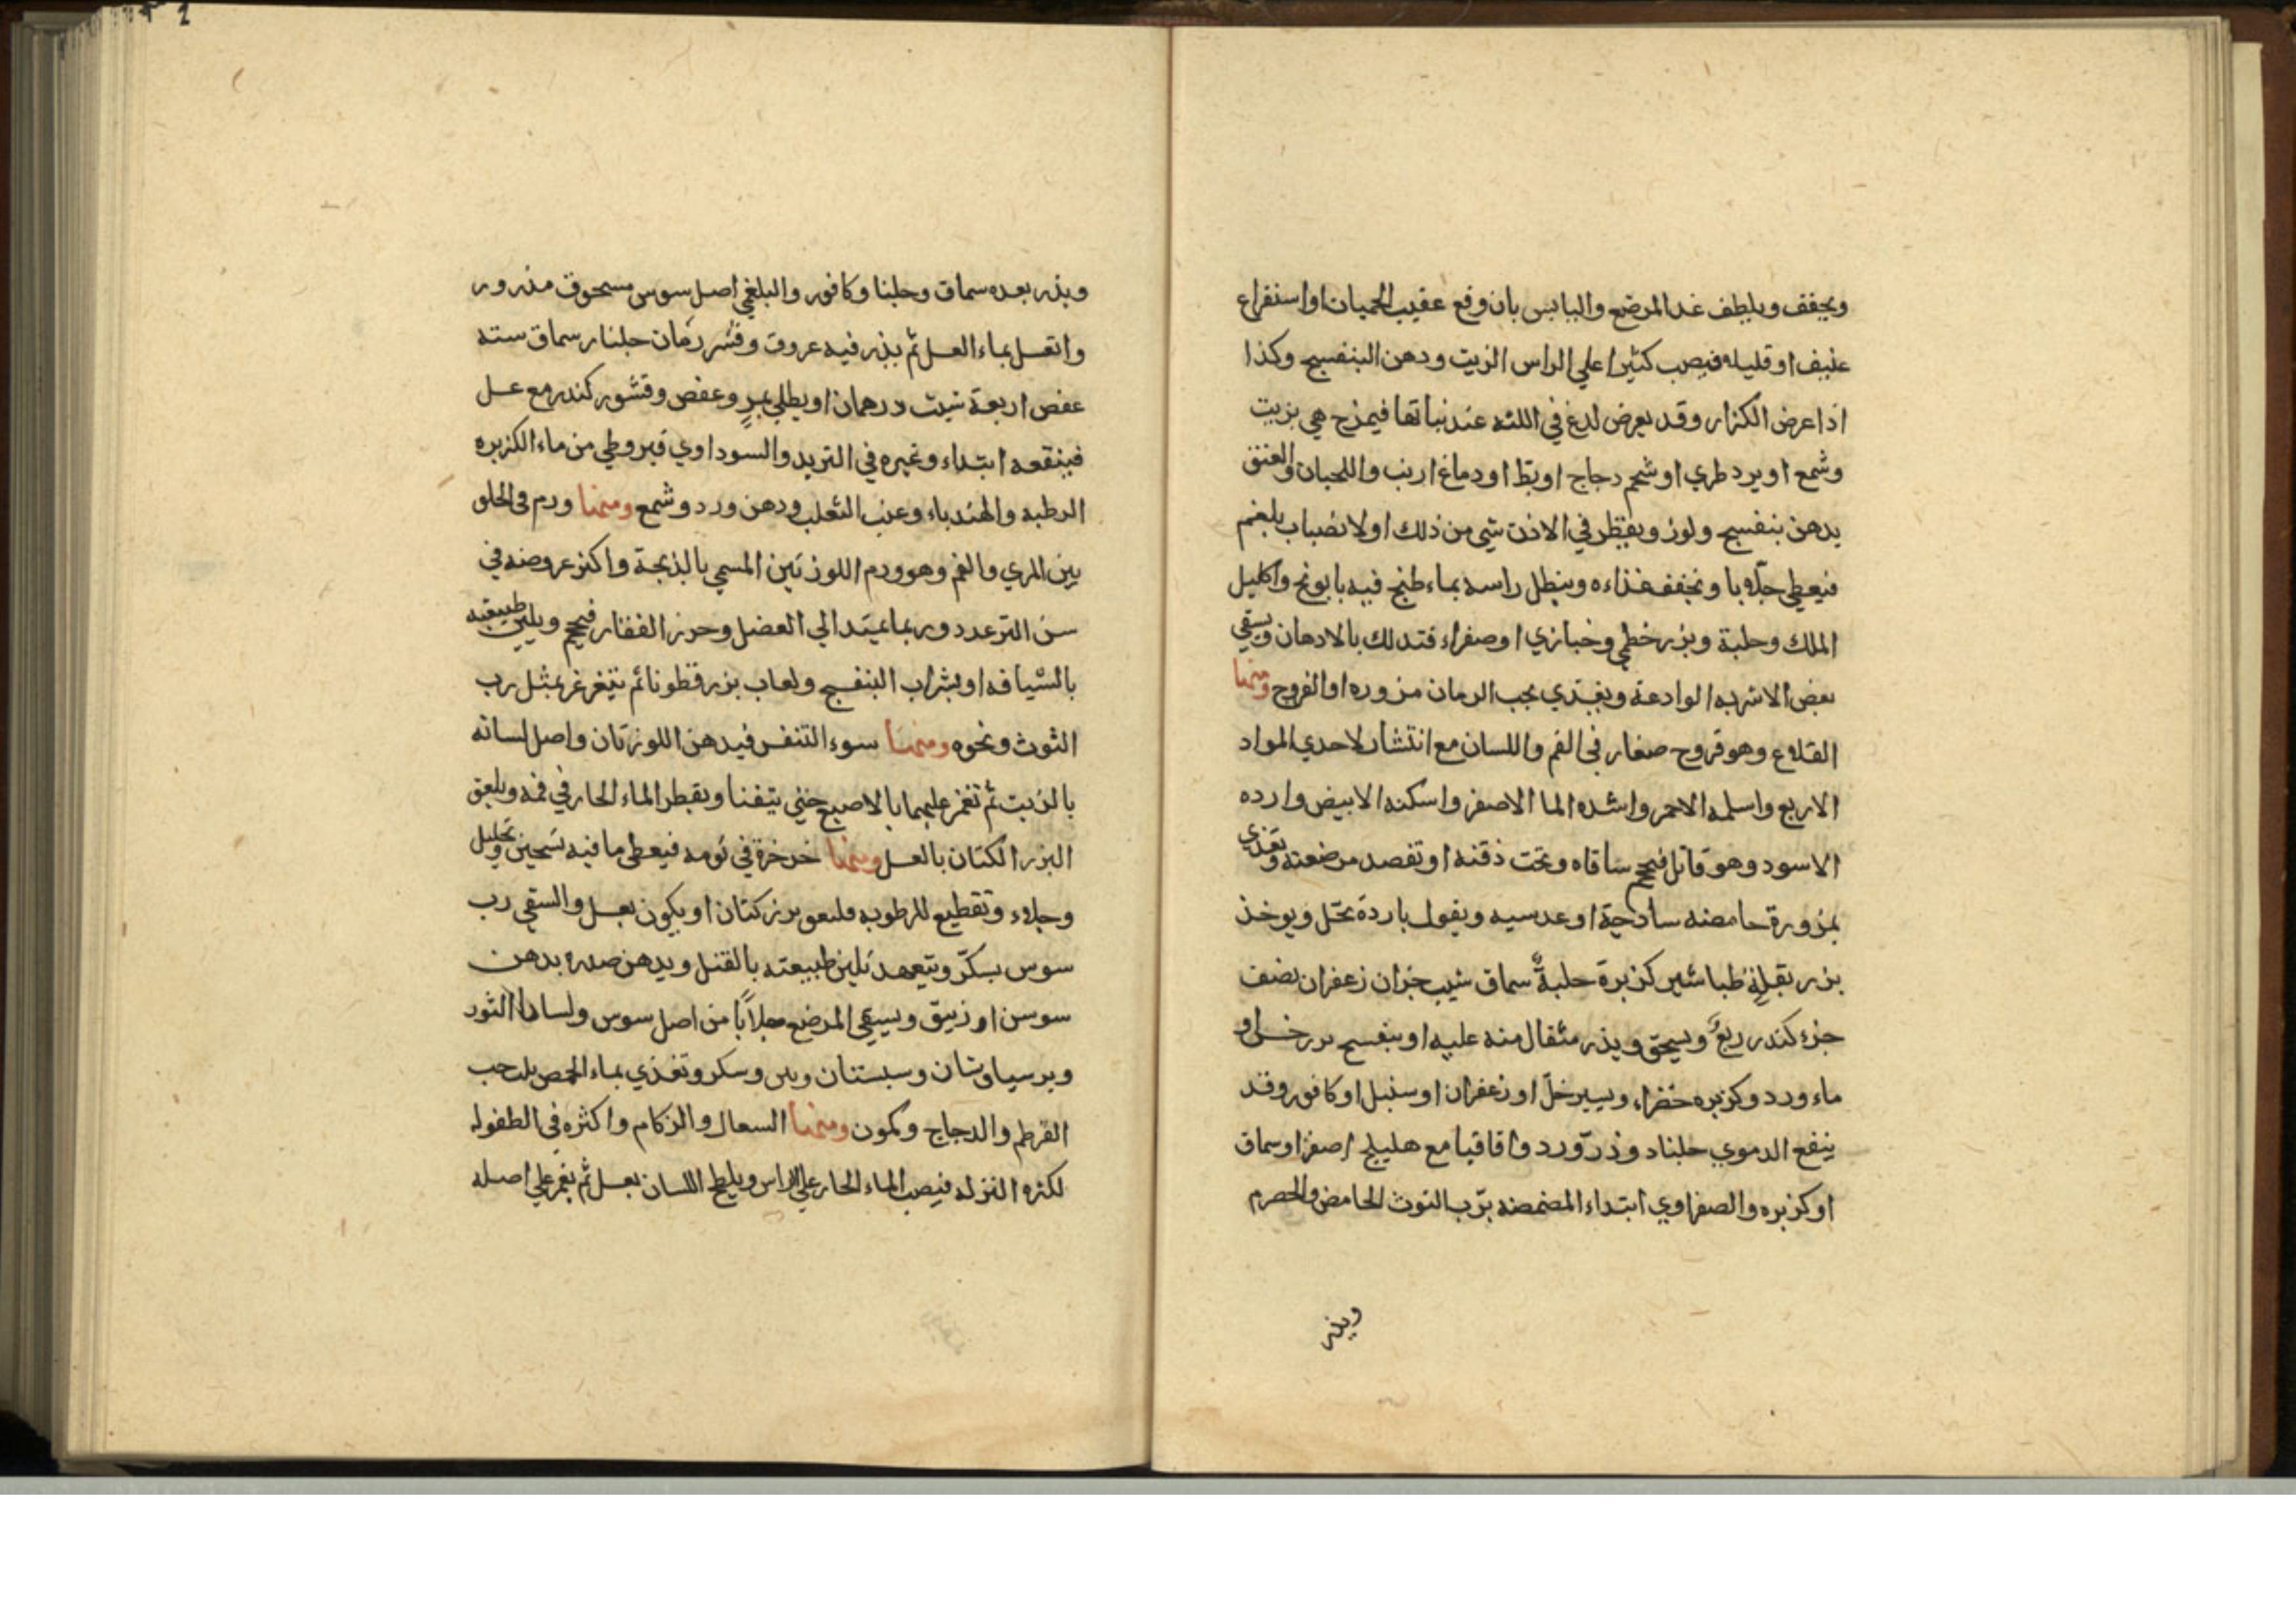 ويجفف ويلطف غدا المرضع واليابس بان وقع عقيب الحميات او استفراع
عنيف او قليله فيصب كثيرا علي الراس الزيت ودهن البنفسج وكذا
اذا عرض الكزار وقد يعرض لدغ في اللثه عند نباتها فيمزج هي بزيت
وشمع او يرد طري او شحم دجاج او بط او دماغ ارنب واللحيان والعنق
يدهن بنفسج ولوز ويقطر في الاذن شي من ذلك او لانصباب بلغم
فيعطي جلابا ويخفف غذاءه وينطل راسه بماء طبخ فيه بابونج واكليل
الملك وحلبة وبزر خطمي وخبازي او صفراء فتدلك بالادهان ويسقي
بعض الاشربه الوادعة ويغتدي بحب الرمان مزوره او الفروج ومنها
القلاع وهو قروح صغار في الفم واللسان مع انتشار لاحدي المواد
الاربع واسلمه الاحمر واشده الما الاصفر واسكنه الابيض وارده
الاسود وهو قاتل فيحجم ساقاه وتحت ذقنه او تفصد مرضعته وتغذي
بمزورة حامضه ساذجية او عدسيه وبقول باردة بخل ويوخذ
بزر بقله طباشير كزبرة حلبة سماق شب جزان زعفران نصف
جزء كندر ربع ويسحق ويذر مثقال منه عليه او بنفسج خل او
ماء ورد وكزبره خضراء ويسير خل او زعفران او سنبل او كافور وقد
ينفع الدموي جلنار وذر ورد واقاقيا مع هليلج اصفر او سماق
او كزبره والصفراوي ابتداء المضمضه برب التوث الحامض والحصرم
ويذر
ويذر بعده سماق وجلنا وكافور والبلغمي اصل سوس مسحوق مذرور
وانغسل بماء العسل ثم يذر فيه عروق وقشر رمان جلنار سماق سته
عفص اربعة شبت درهمان او يطلي بمر وعفص وقشور كندر مع عسل
فينقعه ابتداء وغيره في التريد والسوداوي قيروطي من ماء الكزبره
الرطبه والهندباء وعنب الثعلب ودهن ورد وشمع ومنها ورم في الحلق
بين المري والفم وهو ورم اللوزتين المسمي بالذبحة واكثر عروضه في
سن الترعدد وربما يمتد الي العضل وحرز الفقار فيحجم ويلين طبيعته
بالشيافه او بشراب البنفسج ولعاب بزر قطونا ثم يتغرغر بمثل رب
التوث ونحوه ومنها سوء التنفس فيدهن اللوزتان واصل لسانه
بالزيت ثم تغمز عليهما بالاصبع حتي يتفنا ويقطر الماء الحار في فمه ويلعق
البزر الكتان بالعسل ومنها خرخرة في نومه فيعطي ما فيه تسخين وتحليل
وجلاء وتقطيع للرطوبه فلعوق بزر كتان او يكون بعسل والسقي رب
سوس بسكر ويتعهد تليين طبيعته بالفتل ويدهن صدره بدهن
سوسن او زنبق ويسقي المرضع جلابا من اصل سوس ولسان الثور
وبرسياوشان وسبستان وتين وسكر وتغذي بماء الحمص بلب حب
القرطم والدجاج وكمون ومنها السعال والزكام واكثره في الطفوله
لكثره النزله فيصب الماء الحار علي الراس ويلطخ اللسان بعسل ثم يغمز علي اصله